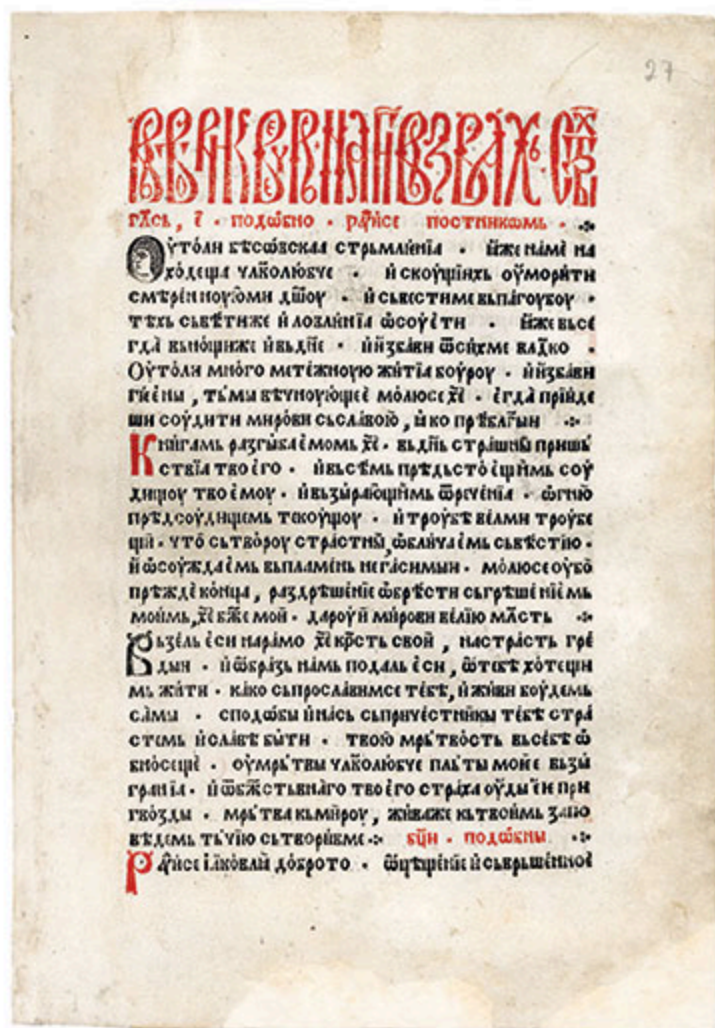 27
гла́сь, є҃ · подѡ́бно · ра́уисе постникѡмь ·
Оу́толи бѣсѡвскаа стрьмлѥ́нїа · и҆же на ме на
хо́деща чл҃колю́бче · и҆ скоу́щїихь оу҆мори́ти
смѣре́нноую ми дш҃оу · и҆ сьвести ме вь па́гоубоу ·
тѣ́хь сьвѣ́ти же и҆ ловлѥ́нїа ѡ҆соуе́ти · и҆же вьсе
гда̀ вь но́щи же и҆ вь дн҃е · и҆ и҆зба́ви ѿ си́хь ме влⷣко ·
Оу҆то́ли мно́го мете́жноую жи́тїа боу́роу · и҆ и҆зба́ви
гее́ны , ть́мы вѣ́чноующеѐ мо́люсе хе҃ · е҆гда̀ прїи́де
ши соу́дити ми́рови сь сла́вою , ꙗ҆ко прѣбл҃гыи
Кни́гамь разгы́баемомь хе҃ · вь дн҃ь стра́шныи прише́
ствїа твоего̀ · и҆ вьсе́мь прѣдьстое́щїимь соу
ди́щоу твоемоу̀ · и҆ вьзы́рающїимь ѿрече́нїа · ѡ҆гню̀
прѣ́дсоу́дищемь текоу́щоу · и҆ троу́бѣ ве́лми троу́бе
щїи · что̀ сьтво́роу стра́стныи , ѡ҆блича́емь сьвѣ́стїю ·
и҆ ѡ҆соужда́емь вь пла́мень негаси́мыи · мо́люсе оу҆бо̀
прѣ́жде ко́нца , раздрѣше́нїе ѡ҆брѣ́сти сьгрѣше́нїемь
мои́мь , хе҃ бж҃е мои · дароу́и ми́рови ве́лїю млⷭ҇ть
Вьзе́ль есѝ на ра́мо хе҃ крⷭ҇ть свои , на стра́сть гре́
дыи · и҆ ѡ҆́бразь на́мь пода́ль есѝ , ѿ тебѣ̀ хо́тещи
мь жи́ти · ка́ко сь просла́вимсе те́бѣ , и҆ жи́ви боу́демь
са́мы · спо́добы и҆ на́сь сьприче́стникы те́бѣ стра́
стемь и҆ сла́вѣ бы́ти · твою̀ мрь́твость вь се́бѣ ѡ҆
бно́сеще · оу҆мрь́твы чл҃колю́бче пль́ты моѐ вьзы́
гранїа · и҆ ѿ бжⷭ҇твьна́го твоего̀ стра́ха оу́ды ѐи при
гво́зды · мрь́тва кь ми́роу , жи́ва же кь твои́мь запо
вѣ́демь ть́чїю сьтвори́в ме бц҃и · подѡ́бны
Ра́уисе їа́ковлы до́брото · ѡ҆цѣще́нїе и҆ сьврьше́нное